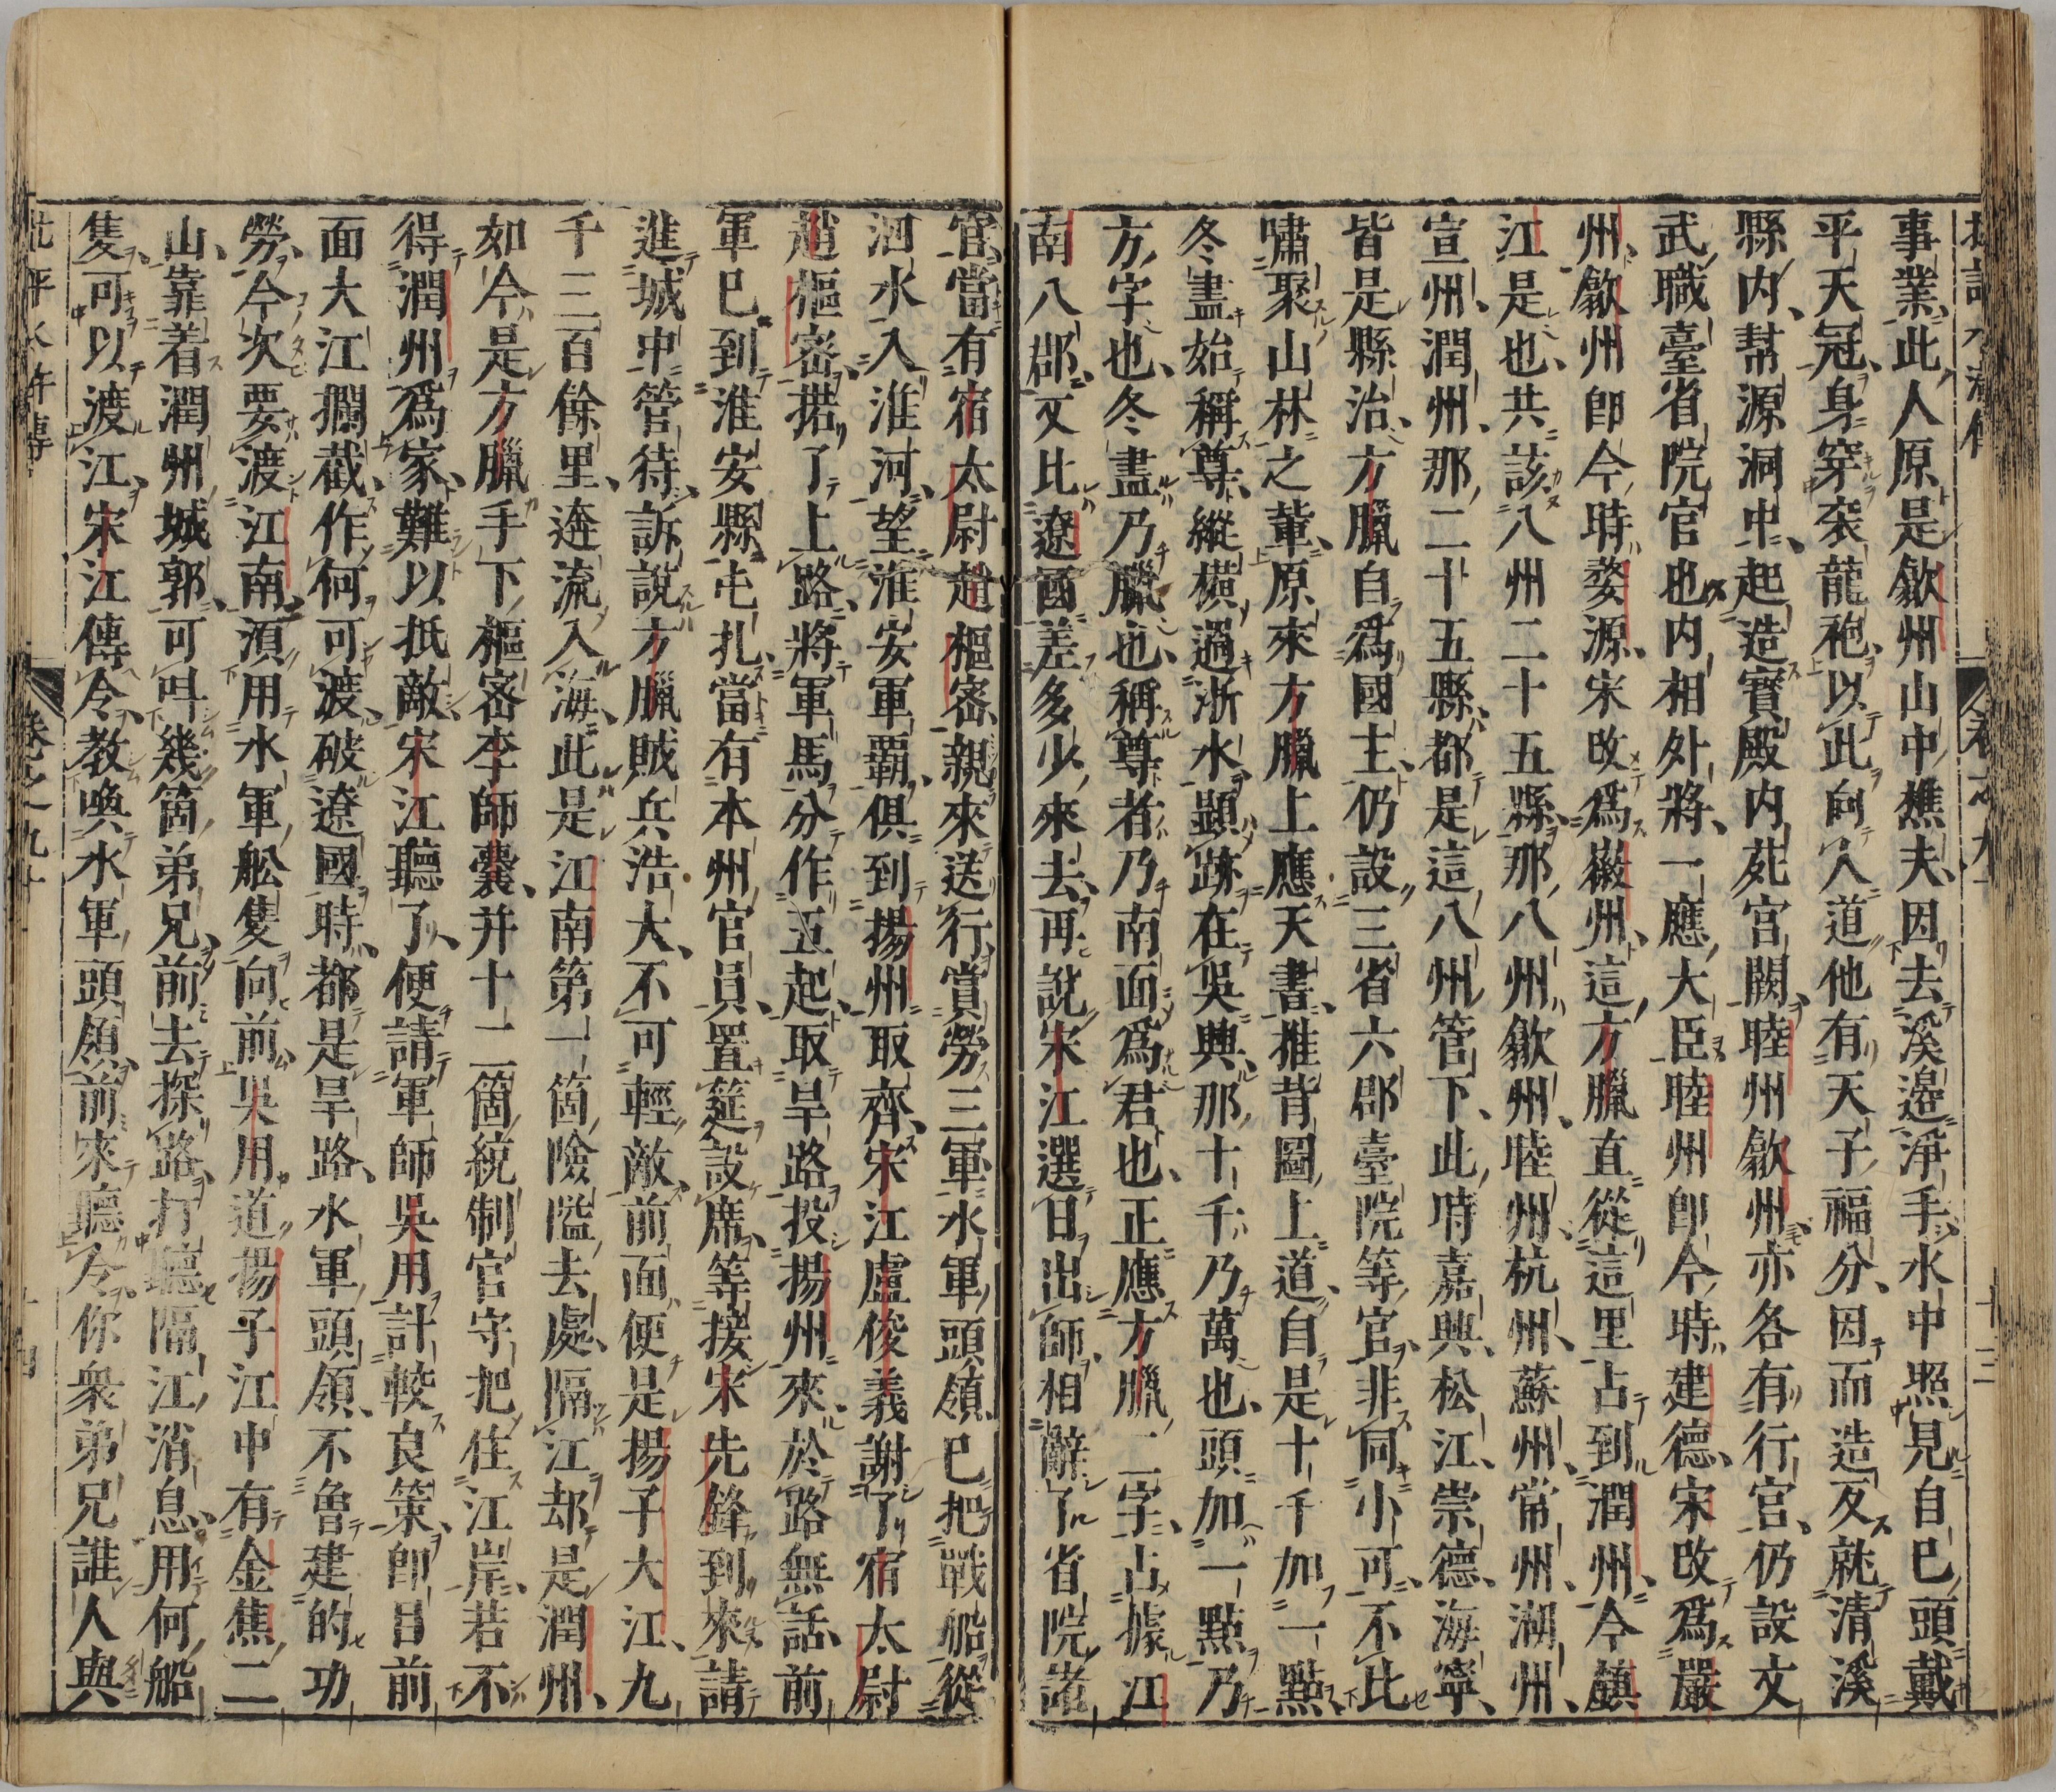 事業此人原是歙州山中樵夫因去溪邊淨手水中照見自巳頭戴
平天冠身穿衮龍袍以此向人道他有天子福分因而造反就清溪
縣内幇源洞中起造寳殿内苑宫闕睦州歙州亦各有行宫仍設文
武職臺省院官也内相外將一應大臣睦州卽今時建德宋改爲嚴
州歙州卽今時婺源宋改爲徽州這方臘直從這里占到潤州今鎮
江是也共該八州二十五縣那八州歙州睦州杭州蘇州常州湖州
宣州潤州那二十五縣都是這八州管下此時嘉興松江崇德海寧
皆是縣治方臘自爲國主仍設三省六郡臺院等官非同小可不比
嘯聚山林之輩原來方臘上應天書推背圖上道自是十千加一點
冬盡始稱尊縱横過浙水顯跡在吳興那十千乃萬也頭加一點乃
方字也冬盡乃臘也稱尊者乃南面爲君也正應方臘二字占據江
南八郡又比遼國差多少來去再說宋江選日出師相辭了省院諸
官當有宿太尉趙樞密親來送行賞勞三軍水軍頭領巳把戰船從
泗水入淮河望淮安軍覇俱到揚州取齊宋江盧俊義謝了宿太尉
趙樞密㨿了上路將軍馬分作五起取旱路投揚州來於路無話前
軍巳到淮安縣屯扎當有本州官員置筵設席等接宋先鋒到來請
進城中管待訴說方臘賊兵浩大不可輕敵前面便是揚子大江九
千三百餘里逩流入海此是江南第一箇險隘去處隔江却是潤州
如今是方臘手下樞密李師囊并十二箇統制官守把住江岸若不
得潤州爲家難以抵敵宋江聽了便請軍師吳用計較良策卽目前
面大江攔截作何可渡破遼國時都是旱路水軍頭領不魯建的功
勞今次要渡江南湏用水軍舩隻向前吳用道揚子江中有金焦二
山靠着潤州城郭可呌幾箇弟兄前去探路打聽隔江消息用何船
隻可以渡江宋江傳令教喚水軍頭領前來聽令你衆弟兄誰人與